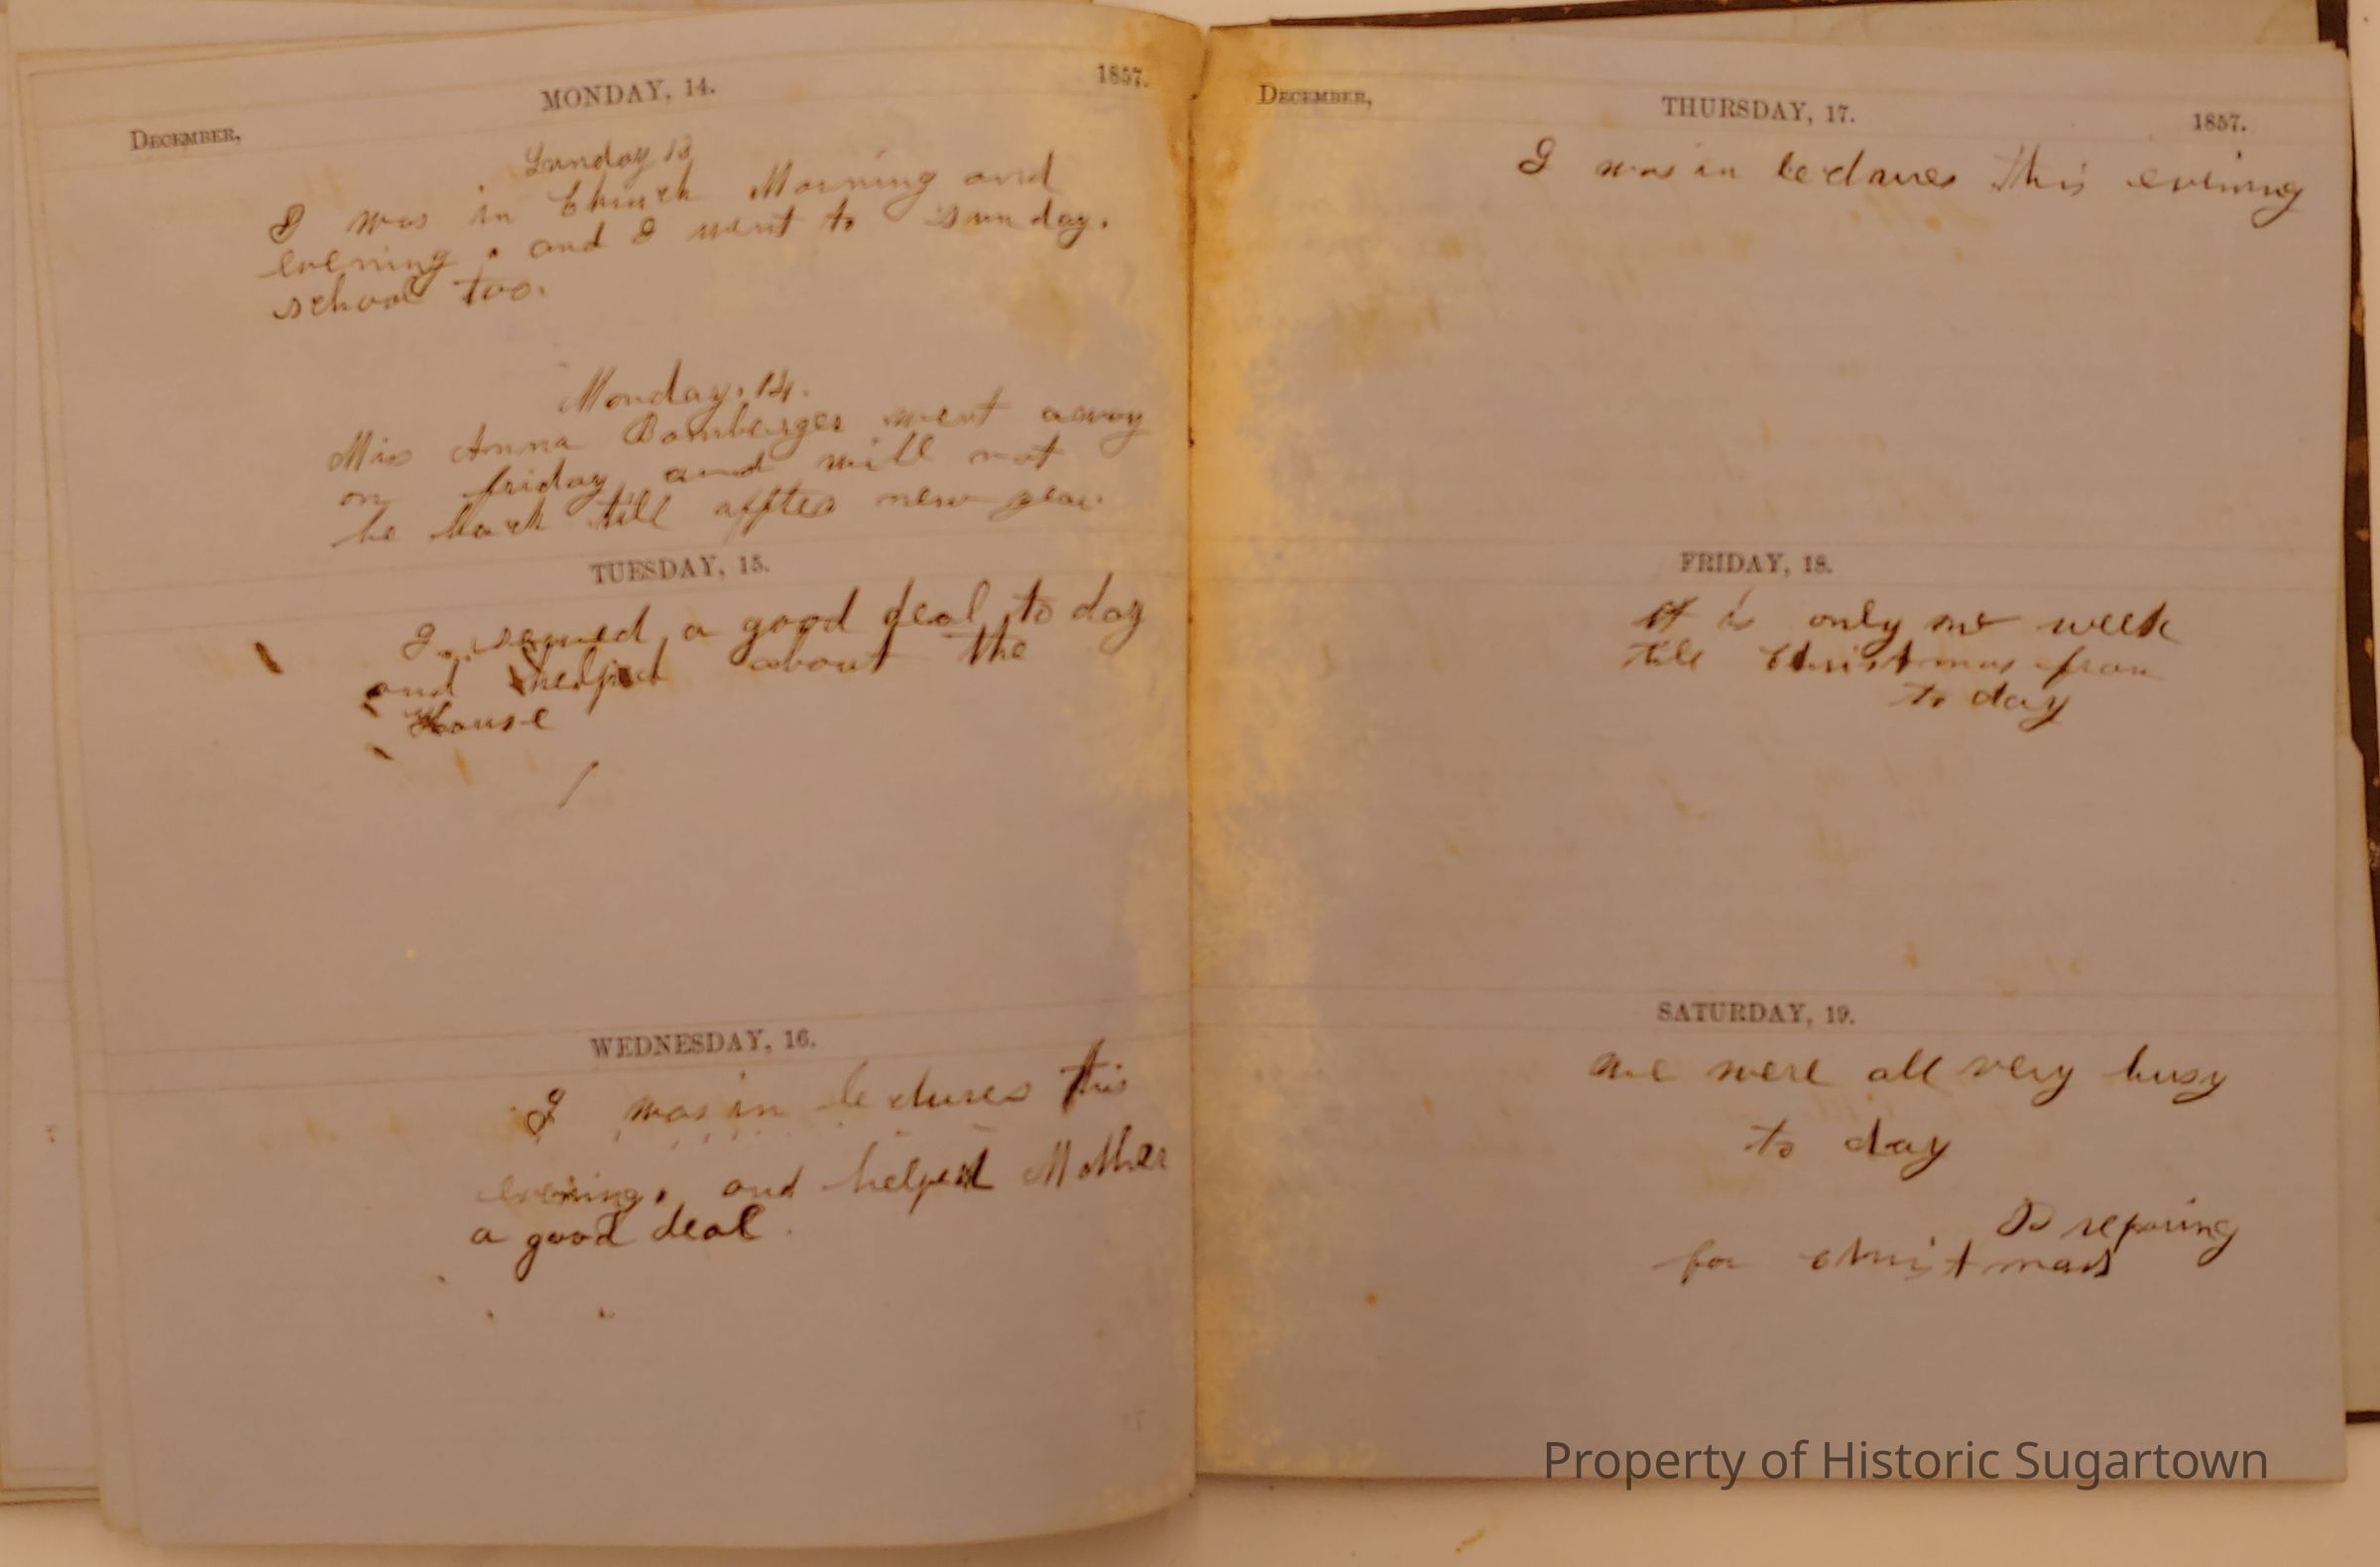 December,
MONDAY, 14.
1857.
Sunday 13
I was in Church Morning and
evening. and I went to sunday.
school too.
Monday. 14.
Miss Anna Bomberger went away
on friday and will not
be back till affter new year.
TUESDAY, 15.
I sewed a good deal to day
and helped about the
House
WEDNESDAY, 16.
I was in lectures this
evening. and helped Mother
a good deal.
December,
THURSDAY, 17.
1857.
I was in lectures this evening
FRIDAY, 18.
It is only one week
till Christmas from
to day
SATURDAY, 19.
we were all very busy
to day
for christmas
Property of Historic Sugartown